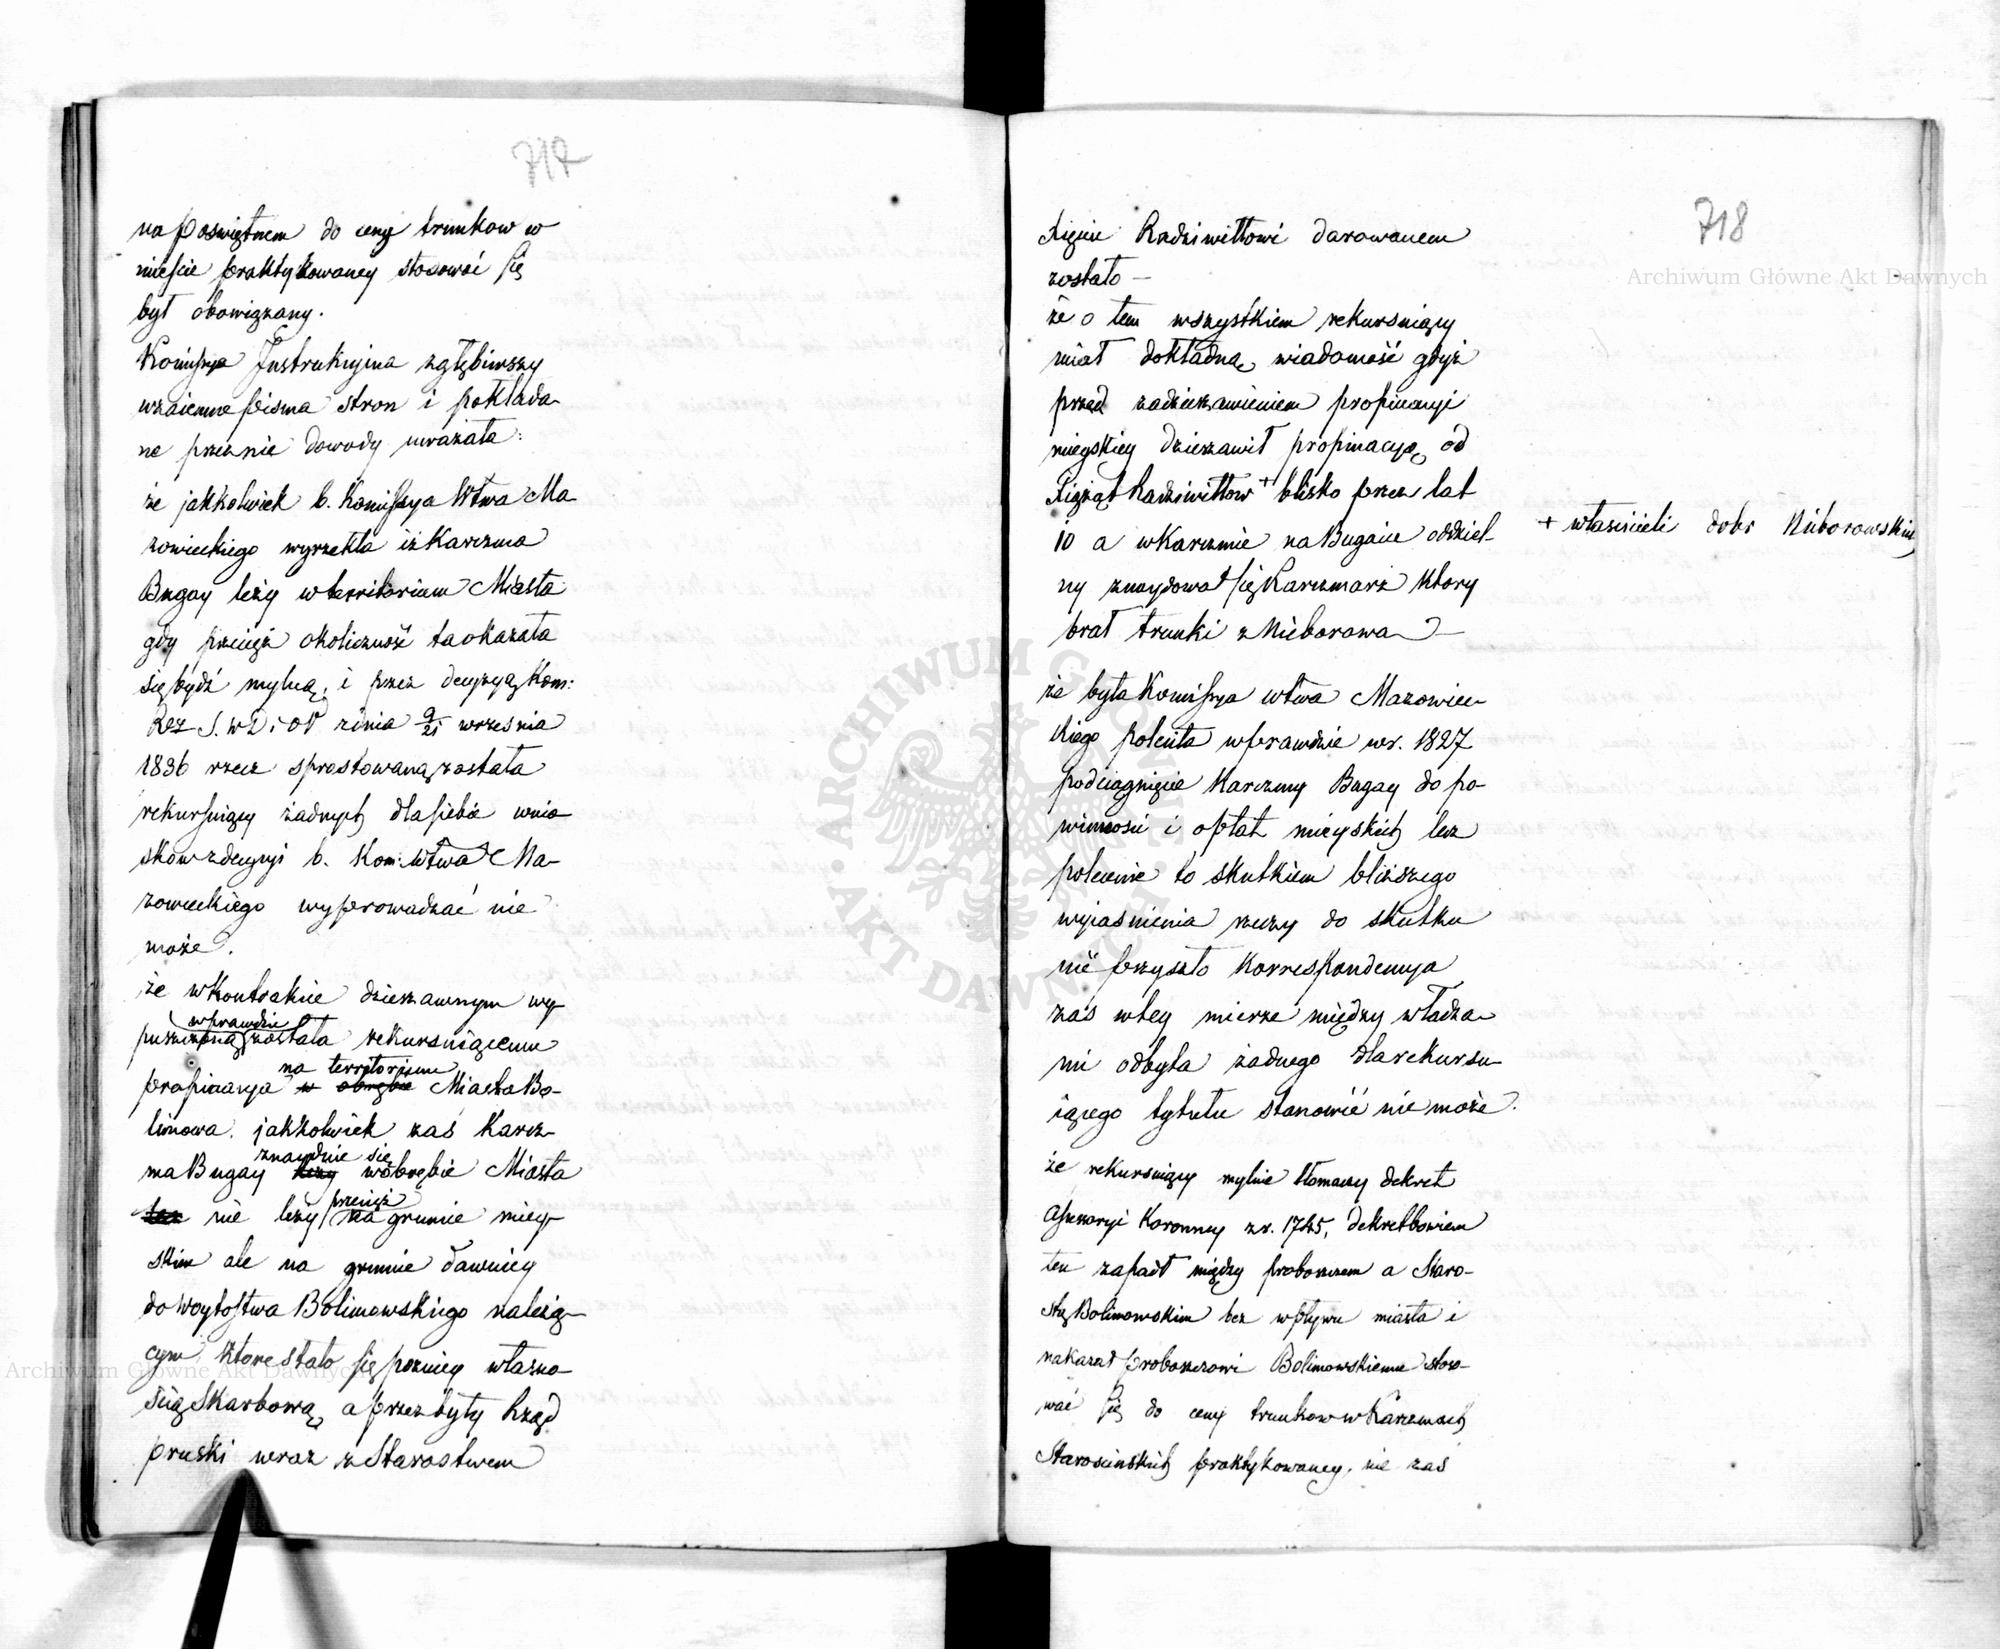 717
na Poswiętnem do ceny trunkow w
mieście praktykowaney stosować się
był obowiązany.
Kommissya Instrukcyina zgłębiwszy
wzaiemne pisma stron i pokłada-
ne przez nie dowody uważała:
że jakkolwiek b. Kommissya Wtwa Ma-
zowieckiego wyrzekła iż Karczma
Bugay leży w territorium Miasta
gdy przecież okoliczność ta okazała
się bydź mylną, i przez decyzyą Kom:
Rz S. W D. i OP z dnia 9/21 września
1836 rzecz sprostowaną została
rekursuiący żadnych dla siebie wnio-
skow z decyzyi b. Kom: Wtwa Ma-
zowieckiego wyprowadzać nie
może.
że w Kontrakcie dzierzawnym wy-
wprawdzie
puszczoną została rekursuiącemu
na territorium
propinacya w obrębie Miasta Bo-
limowa. jakkolwiek zaś Karcz-
znayduie się
ma Bugay leży w obrębie Miasta
przecież
lecz nie leży na gruncie miey-
skim ale na gruncie dawniey
do Woytostwa Bolimowskiego należą-
cym, ktore stało się pozniey własno-
ścią Skarbową, a przez były Rząd
pruski wraz z Starostwem
718
Xięciu Radziwiłłowi darowanem
zostało —
że o tem wszystkiem rekursuiący
miał dokładną wiadomość gdyż
przed zadzierzawieniem propinacyi
mieyskiey dzierzawił propinacyą od
Xiąząt Radziwiłłow + blisko przez lat
10 a w Karczmie na Bugaiu oddziel-
+ właścicieli dobr Nieborowskich
ny znaydował się Karczmarz ktory
brał trunki z Nieborowa —
że była Kommissya Wtwa Mazowiec-
kiego poleciła wprawdzie w r. 1827
podciągnięcie Karczmy Bugay do po-
winności i opłat mieyskich lecz
polecenie to skutkiem bliższego
wyiasnienia rzeczy do skutku
nie przyszło Korrespondencya
zaś w tey mierze między władza-
mi odbyta żadnego dla rekursu-
iącego tytułu stanowić nie może.
że rekursuiący mylnie tłomaczy dekret
Assessoryi Koronney z r. 1745, dekret bowiem
ten zapadł między proboszczem a Staro-
stą Bolimowskim bez wpływu miasta i
nakazał proboszczowi Bolimowskiemu stoso-
wać się do ceny trunkow w Karczmach
Starościńskich praktykowaney, nie zaś
Archiwum Główne Akt Dawnych
Archiwum Główne Akt Dawnych
ARCHIWUM GŁÓWNE AKT DAWNYCH